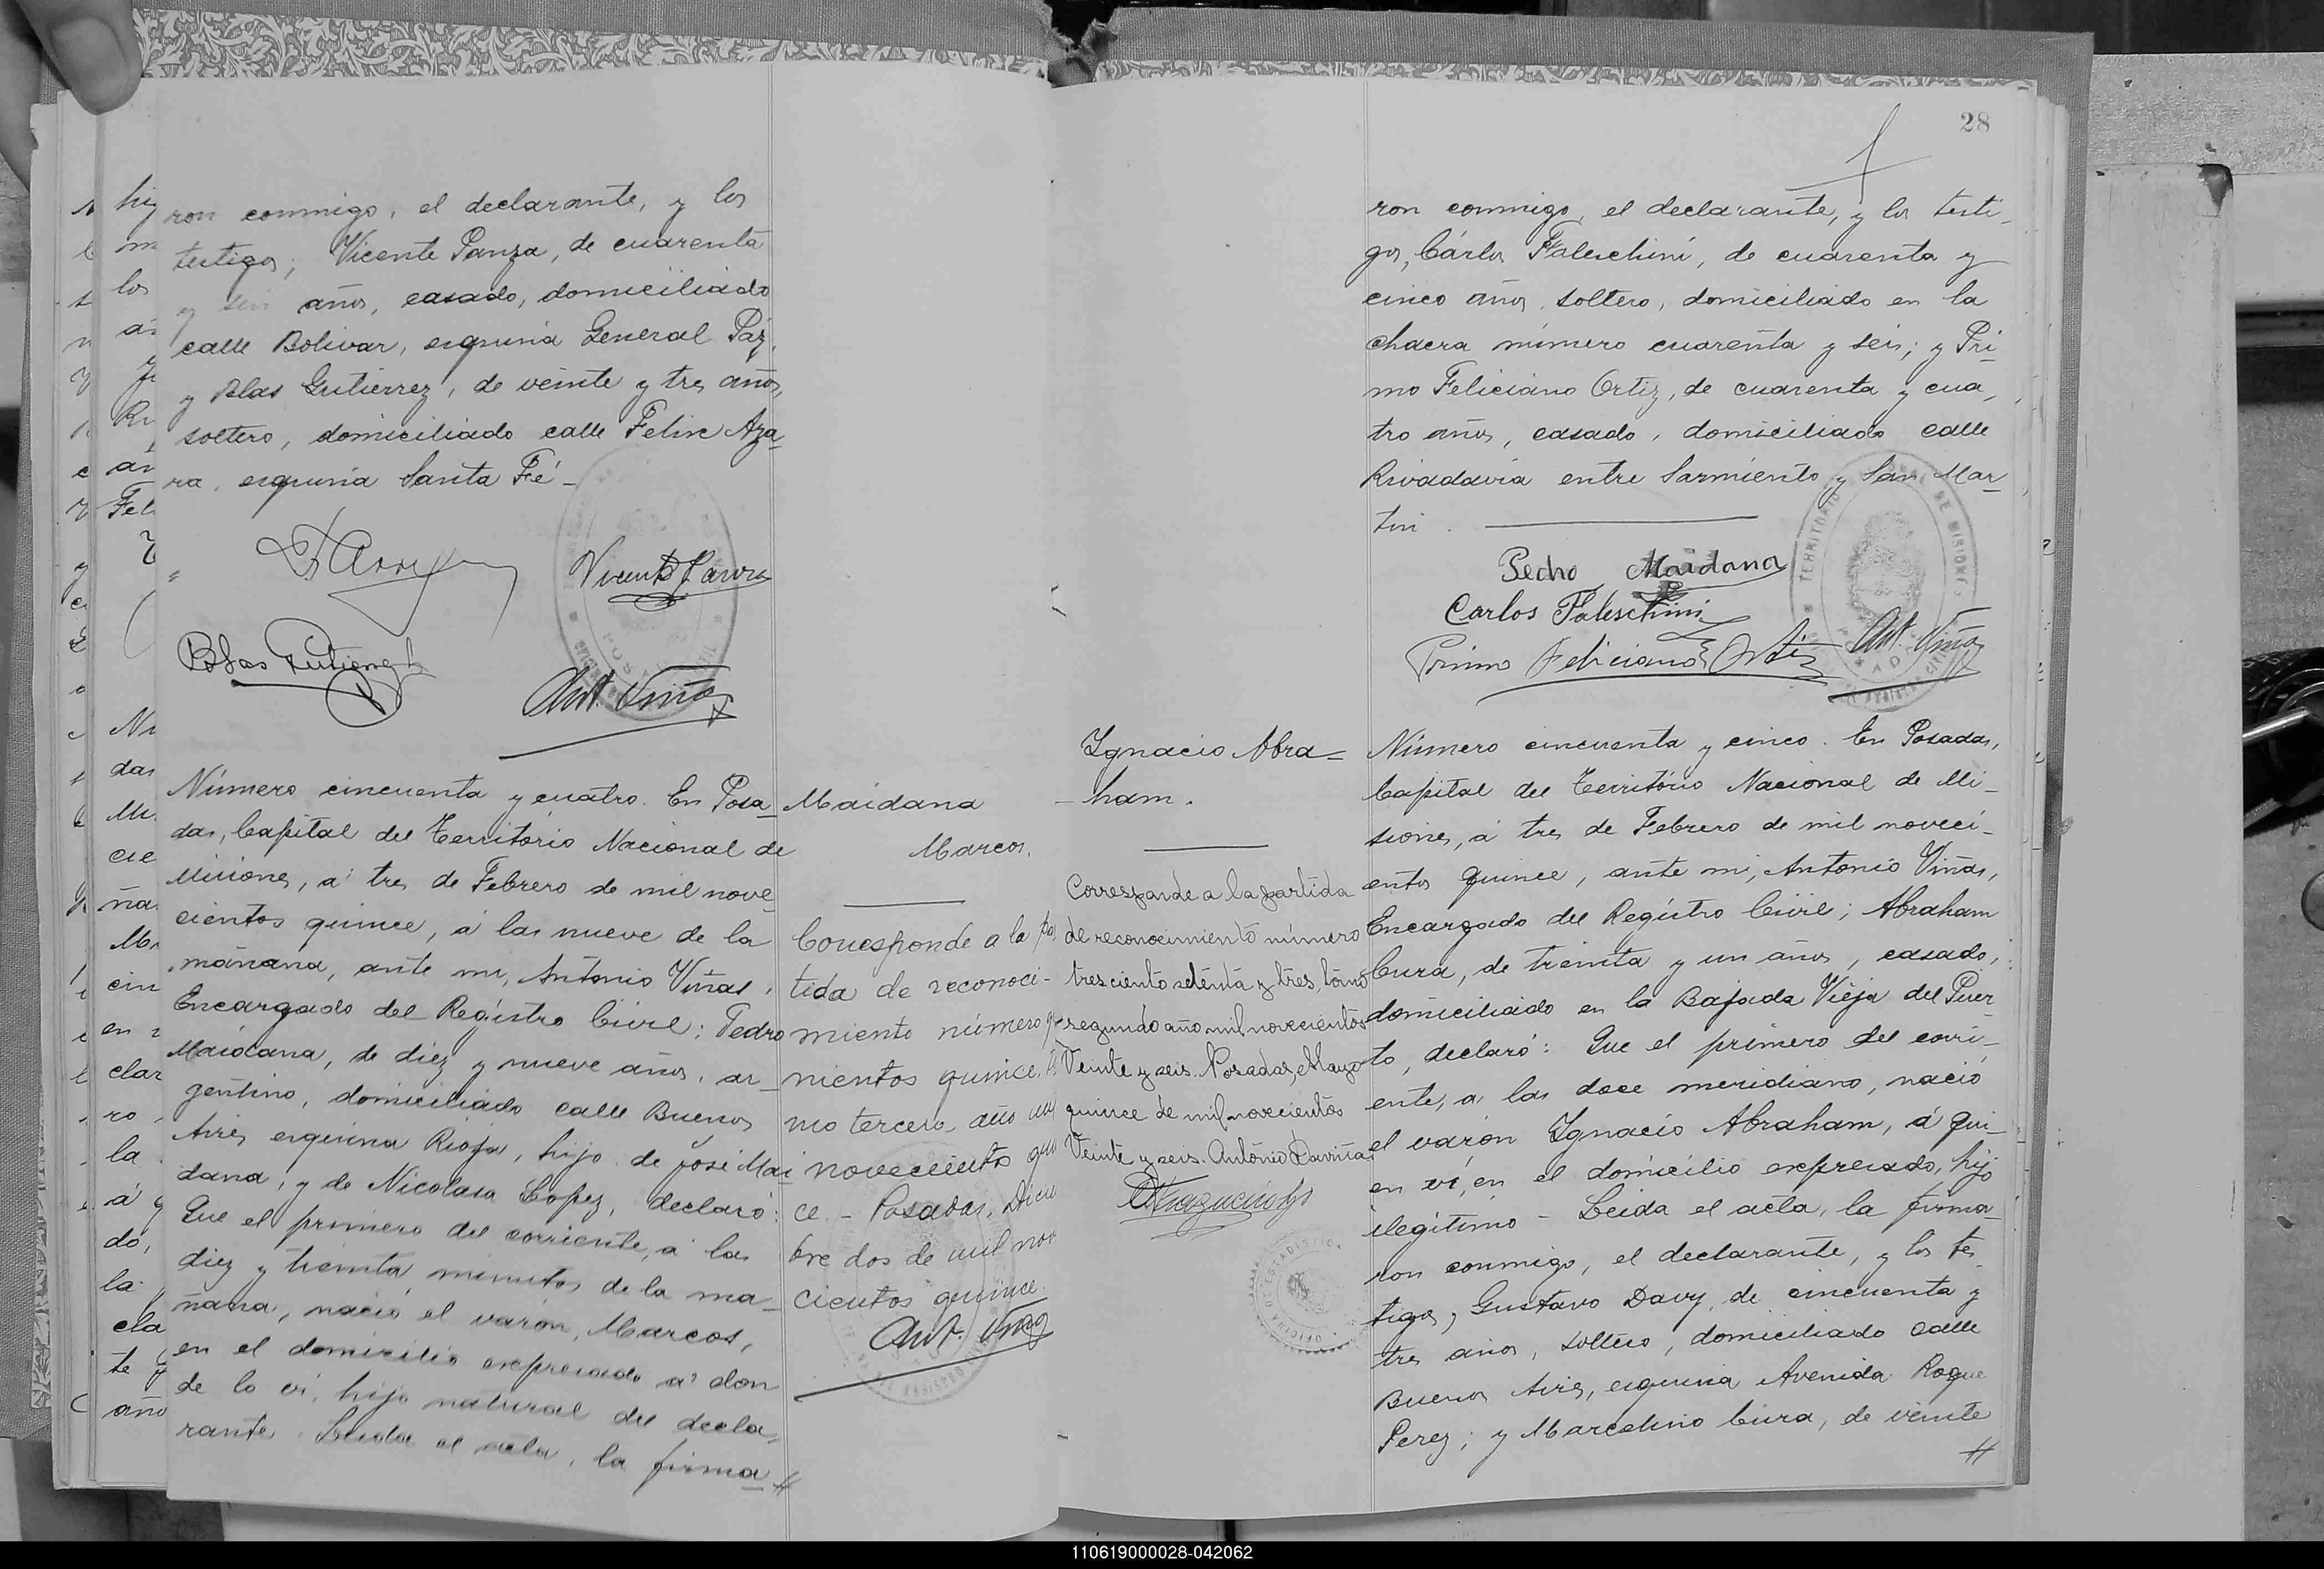 ron conmigo, el declarante, y los
testigos; Vicente Panza, de cuarenta
y seis años, casado, domiciliado
calle Bolivar, esquina General Paz,
y Blas Gutierrez, de veinte y tres años,
soltero, domiciliado calle Felix Aza-
ra, esquina Santa Fé -
Blas Gutierrez
Ant. Viñas
Número cincuenta y cuatro. En Posa-
das, Capital del Território Nacional de
Misiones, á tres de Febrero de mil nove-
cientos quince, á las nueve de la
mañana, ante mi, Antonio Viñas,
Encargado del Registro Civil; Pedro
Maidana, de diez y nueve años, ar-
gentino, domiciliado calle Buenos
Aires esquina Rioja, hijo de José Mai-
dana, y de Nicolasa Lopez, declaró:
Que el primero del corriente, á las
diez y treinta minutos de la ma-
ñana, nació el varón, Marcos,
en el domicilio expresado á don
de lo vi, hijo natural del decla-
rante. Leida el acta, la firma-//
Maidana
Marcos.
Corresponde a la
tida de reconoci-
miento número
nientos quince,
mo tercero año
novecientos
ce. - Posadas,
bre dos de mil
cientos quince.
Ant. Viñas
28
ron conmigo, el declarante, y los testi-
gos, Cárlos Faleschini, de cuarenta y
cinco años, soltero, domiciliado en la
chacra número cuarenta y seis; y Pri-
mo Feliciano Ortiz, de cuarenta y cua-
tro años, casado, domiciliado calle
Rivadavia entre Sarmiento y San Mar-
tin.
Pedro Maidana
Carlos Faleschini
Primo Feliciano Ortiz
Ant. Viñas
Ignacio Abra-
ham.
Corresponde a la partida
de reconocimiento número
tresciento setenta y tres, tomo
segundo año mil novecientos
Veinte y seis. Posadas, Mayo
quince de mil novecientos
Veinte y seis. Antonio
OFICINA DE ESTADISTICA
Número cincuenta y cinco. En Posadas,
Capital del Território Nacional de Mi-
siones, á tres de Febrero de mil noveci-
entos quince, ante mi, Antonio Viñas,
Encargado del Registro Civil; Abraham
Cura, de treinta y un años, casado,
domiciliado en la Bajada Vieja del Puer-
to, declaró: Que el primero del corri-
ente, a las doce meridiano, nació
el varón Ignacio Abraham, á qui-
en vi, en el domicilio expresado, hijo
ilegitimo - Leida el acta, la firma-
ron conmigo, el declarante, y los tes-
tigos, Gustavo Davy, de cincuenta y
tres años, soltero, domiciliado calle
Buenos Aires, esquina Avenida Roque
Perez; y Marcelino Cura, de veinte
//
110619000028-042062